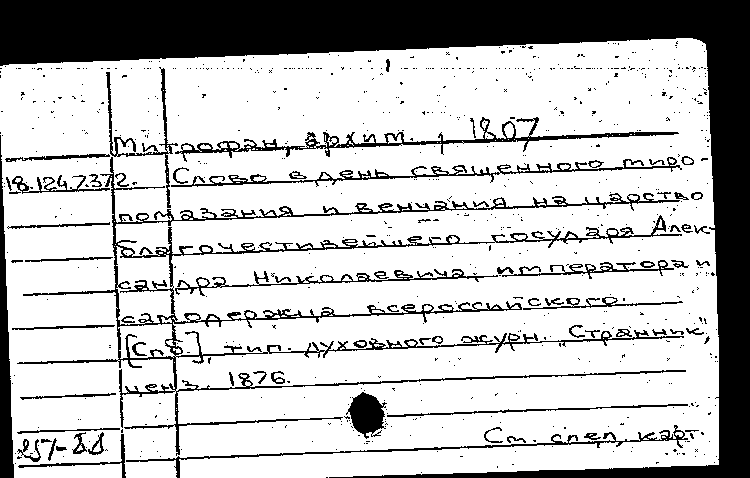 Митрофан, архим., 1807
18.124.7.372. Слово в день священного миро-
помазания и венчания на царство
благочестивейшего государя Алек-
сандра Николаевича, императора и
самодержца всероссийского.
[Спб.], тип. духовного журн. „Странник",
ценз. 1876.
См. след. карт.